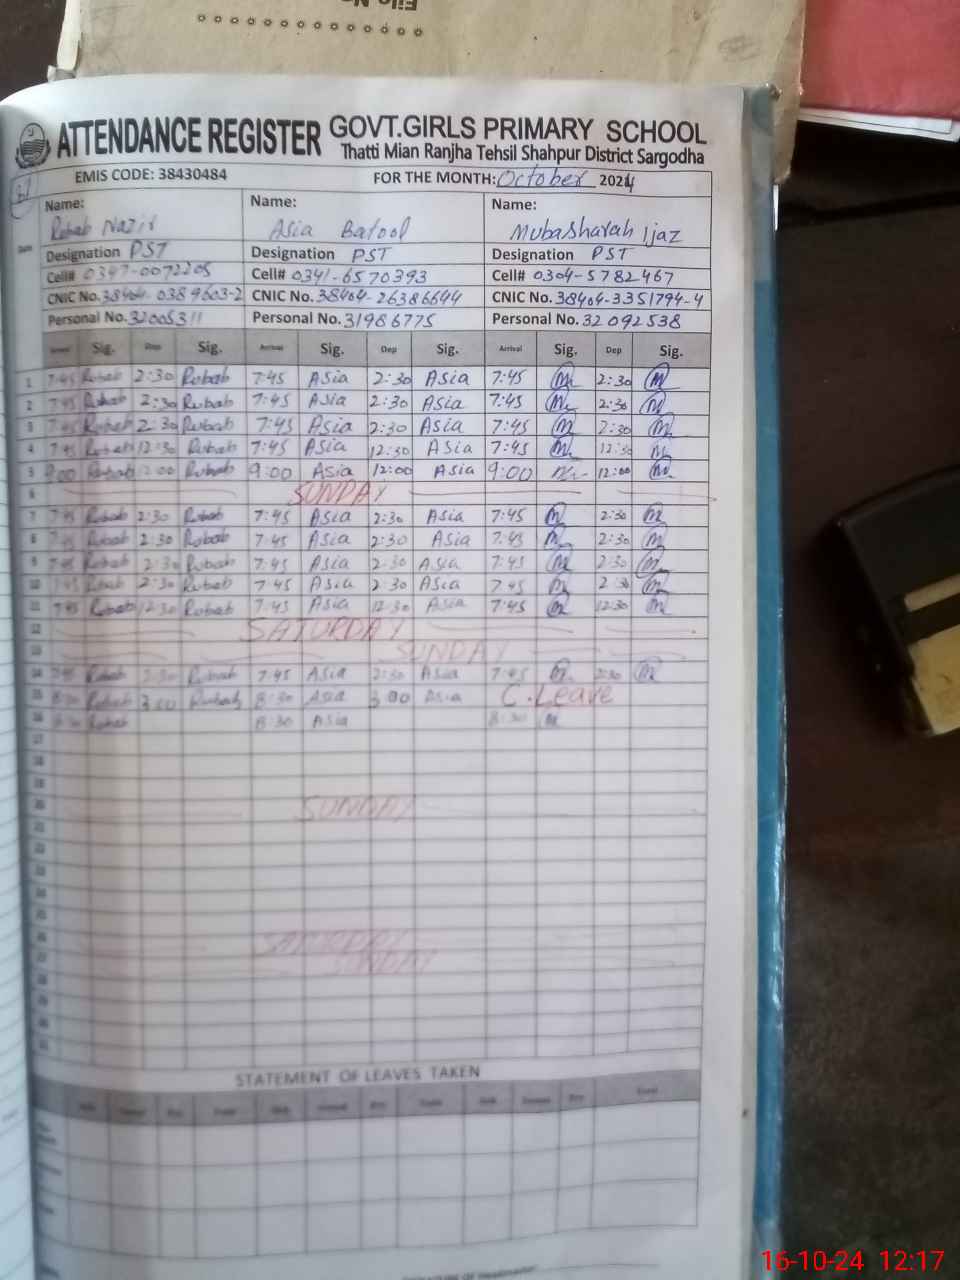 File No
ATTENDANCE REGISTER GOVT.GIRLS PRIMARY SCHOOL
Thatti Mian Ranjha Tehsil Shahpur District Sargodha
EMIS CODE: 38430484 FOR THE MONTH: October 2024
Name: Name: Name:
Rubab Nazir Asia Batool Mubasharah Ijaz
Designation PST Designation PST Designation PST
Cell# 0347-0072205 Cell# 0341-6570393 Cell# 0304-5782467
CNIC No. 38404-0389603-2 CNIC No. 38404-26386644 CNIC No. 38404-3351794-4
Personal No. 32005311 Personal No. 31986775 Personal No. 32092538
Sig. Dep Sig. Arrival Sig. Dep Sig. Arrival Sig. Dep Sig.
1 7:45 Rubab 2:30 Rubab 7:45 Asia 2:30 Asia 7:45 M 2:30 M
2 7:45 Rubab 2:30 Rubab 7:45 Asia 2:30 Asia 7:45 M 2:30 M
3 7:45 Rubab 2:30 Rubab 7:45 Asia 2:30 Asia 7:45 M 2:30 M
4 7:45 Rubab 12:30 Rubab 7:45 Asia 12:30 Asia 7:45 M 12:30 M
5 9:00 Rubab 12:00 Rubab 9:00 Asia 12:00 Asia 9:00 M 12:00 M
6 SUNDAY
7 7:45 Rubab 2:30 Rubab 7:45 Asia 2:30 Asia 7:45 M 2:30 M
8 7:45 Rubab 2:30 Rubab 7:45 Asia 2:30 Asia 7:45 M 2:30 M
9 7:45 Rubab 2:30 Rubab 7:45 Asia 2:30 Asia 7:45 M 2:30 M
10 7:45 Rubab 2:30 Rubab 7:45 Asia 2:30 Asia 7:45 M 2:30 M
11 7:45 Rubab 12:30 Rubab 7:45 Asia 12:30 Asia 7:45 M 12:30 M
12 SATURDAY
13 SUNDAY
14 7:45 Rubab 2:30 Rubab 7:45 Asia 2:30 Asia 7:45 M 2:30 M
15 8:30 Rubab 3:00 Rubab 8:30 Asia 3:00 Asia C.Leave
16 8:30 Rubab 8:30 Asia 8:30 M
17
18
19
20 SUNDAY
21
22
23
24
25
26 SATURDAY
27 SUNDAY
28
29
30
31
STATEMENT OF LEAVES TAKEN
16-10-24 12:17